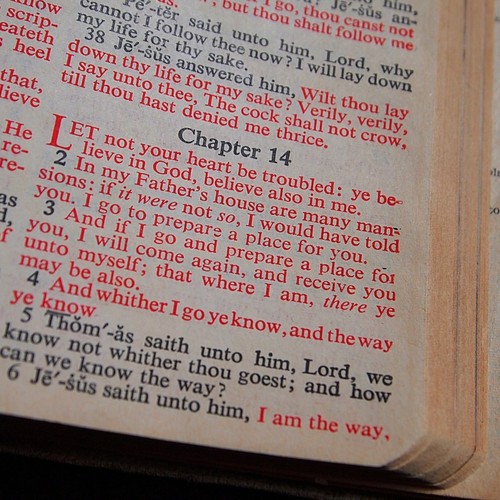 I go, thou canst not him,
but thou shalt follow me
Pē´-tēr said unto him, Lord, why
cannot I follow thee now? I will lay down
my life for thy sake.
38 Jē´-s̆ŭs answered him, Wilt thou lay
down thy life for my sake? Verily, verily,
I say unto thee, The cock shall not crow,
till thou hast denied me thrice.
Chapter 14
LET not your heart be troubled: ye be-
lieve in God, believe also in me.
2 In my Father's house are many man-
sions: if it were not so, I would have told
you. I go to prepare a place for you.
3 And if I go and prepare a place for
you, I will come again, and receive you
unto myself; that where I am, there ye
may be also.
4 And whither I go ye know, and the way
ye know
5 Thŏm´-ăs saith unto him, Lord, we
know not whither thou goest; and how
can we know the way?
6 Jē´-s̆ŭs saith unto him, I am the way,
scrip-
eateth
s heel
that,
lieve
He
re-
re-
as